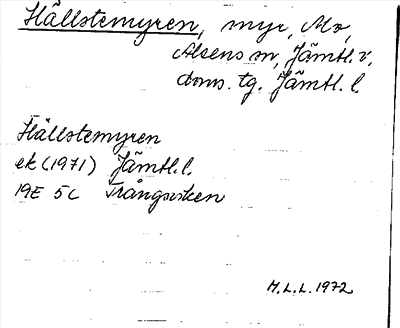 Hällstemyren, myr, Mo,
Alsens sn, Jämtl. v,
doms. tg. Jämtl. l
Hällstemyren
ek (1971) Jämtl. l.
19E 5c Trångsviken
M.L.L. 1972